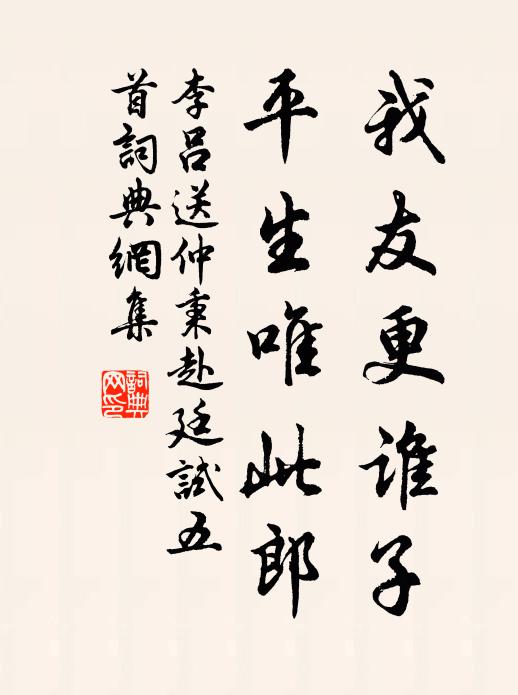 我友更谁子
平生唯此郎
李吕送仲秉赴廷試五
首詞典網集
詞典网印